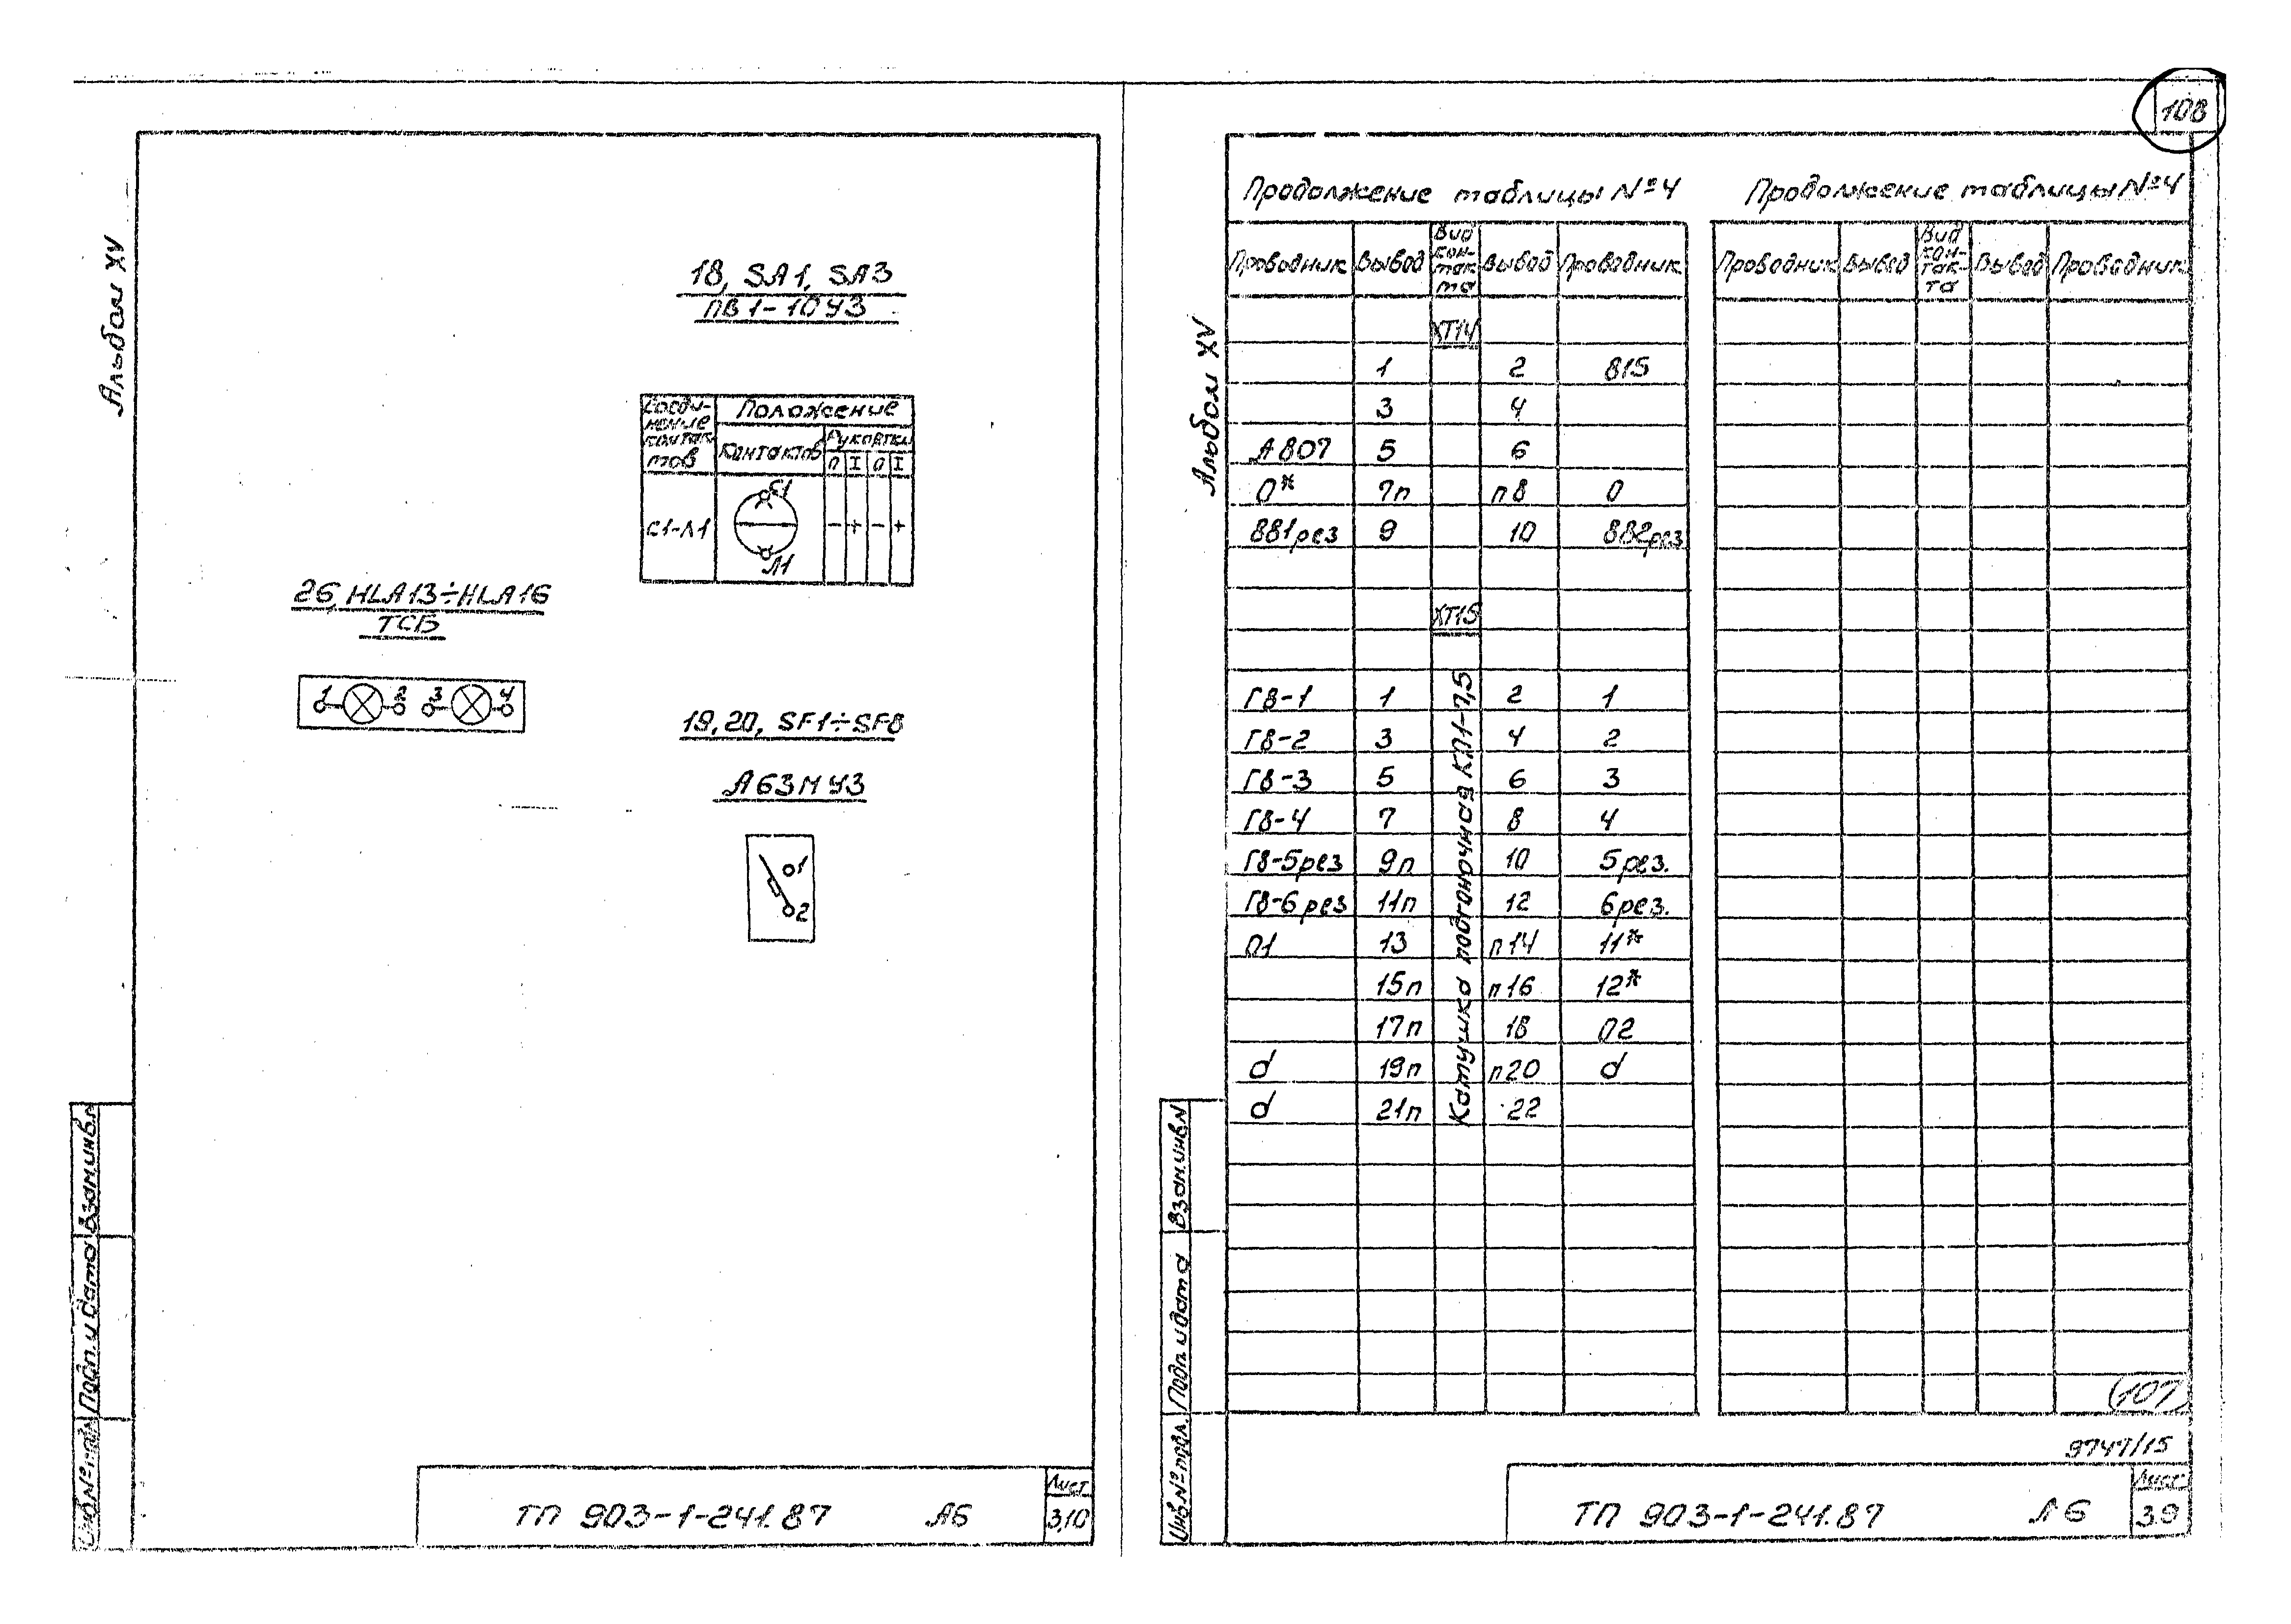 Альбом XV
18, SA1, SA3
ПВ1-10У3
Соеди-
нение
контак
тов
Положение
Контактов
Рукоятки
0 I 0 I
С1-Л1
С1
Л1
- + - +
26, HLA13÷HLA16
ТСБ
1 2 3 4
19, 20, SF1÷SF8
А63М У3
1
2
Взам.инв.N
Подп. и дата
Инв.Nº подл.
ТП 903-1-241.87 А6
Лист
3.10
108
Альбом XV
Продолжение таблицы Nº4
Проводник Вывод Вид кон- так- та Вывод Проводник
ХТ14
1 2 815
3 4
А807 5 6
0* 7п п8 0
881рез 9 10 882рез
ХТ15
Катушка подгоночная КП1-7,5
Г8-1 1 2 1
Г8-2 3 4 2
Г8-3 5 6 3
Г8-4 7 8 4
Г8-5рез 9п 10 5рез.
Г8-6рез 11п 12 6рез.
01 13 п14 11*
15п п16 12*
17п 18 02
d 19п п20 d
d 21п 22
Продолжение таблицы Nº4
Проводник Вывод Вид кон- так- та Вывод Проводник
107
9747/15
Взам.инв.N
Подп. и дата
Инв.Nº подл.
ТП 903-1-241.87 А6
Лист
3.9